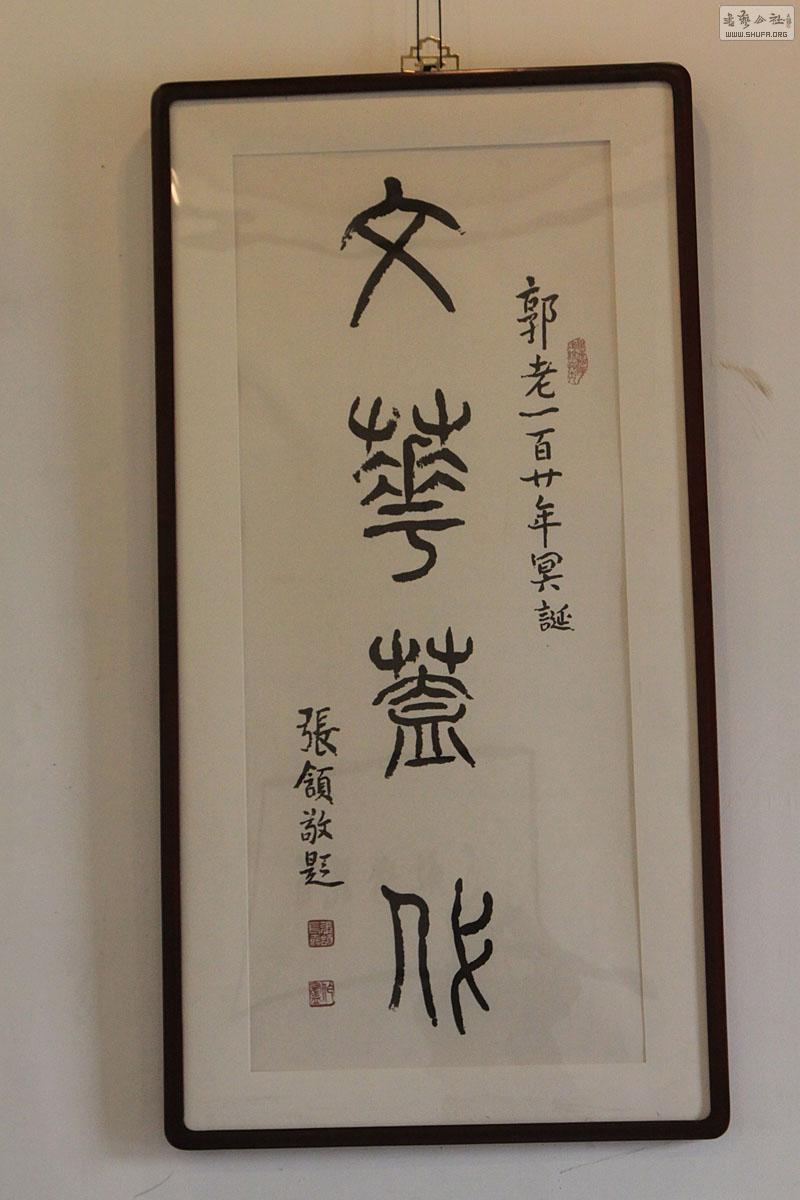 郭老一百廿年冥誕
文華蓋代
張頷敬題
書藝公社
WWW.SHUFA.ORG